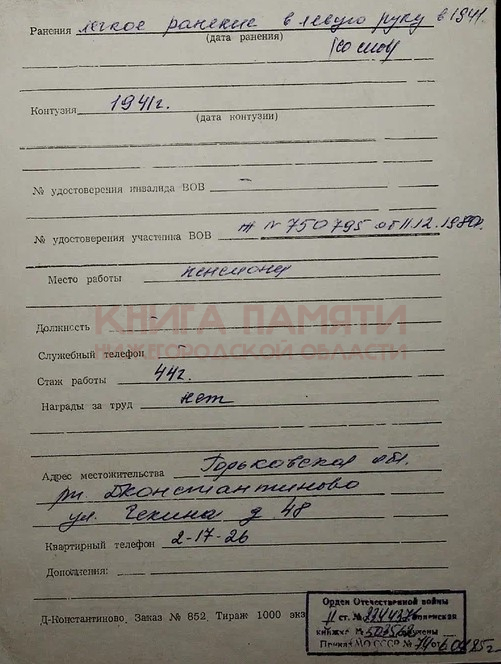 Ранения легкое ранение в левую руку в 1941
(дата ранения)
(со слов)
Контузия 1941г.
(дата контузии)
№ удостоверения инвалида ВОВ –
№ удостоверения участника ВОВ Ж № 750795 от 11.12.1980г.
Место работы пенсионер
КНИГА ПАМЯТИ
Должность –
НИЖЕГОРОДСКОЙ ОБЛАСТИ
Служебный телефон –
Стаж работы 44г.
Награды за труд нет
Адрес местожительства Горьковская обл.
рп. Дконстантиново
ул. Чекина д. 48
Квартирный телефон 2-17-26
Дополнения:
Орден Отечественной войны
II ст. №
Д-Константиново, Заказ № 852 Тираж 1000 экз
книжка №
МО СССР №